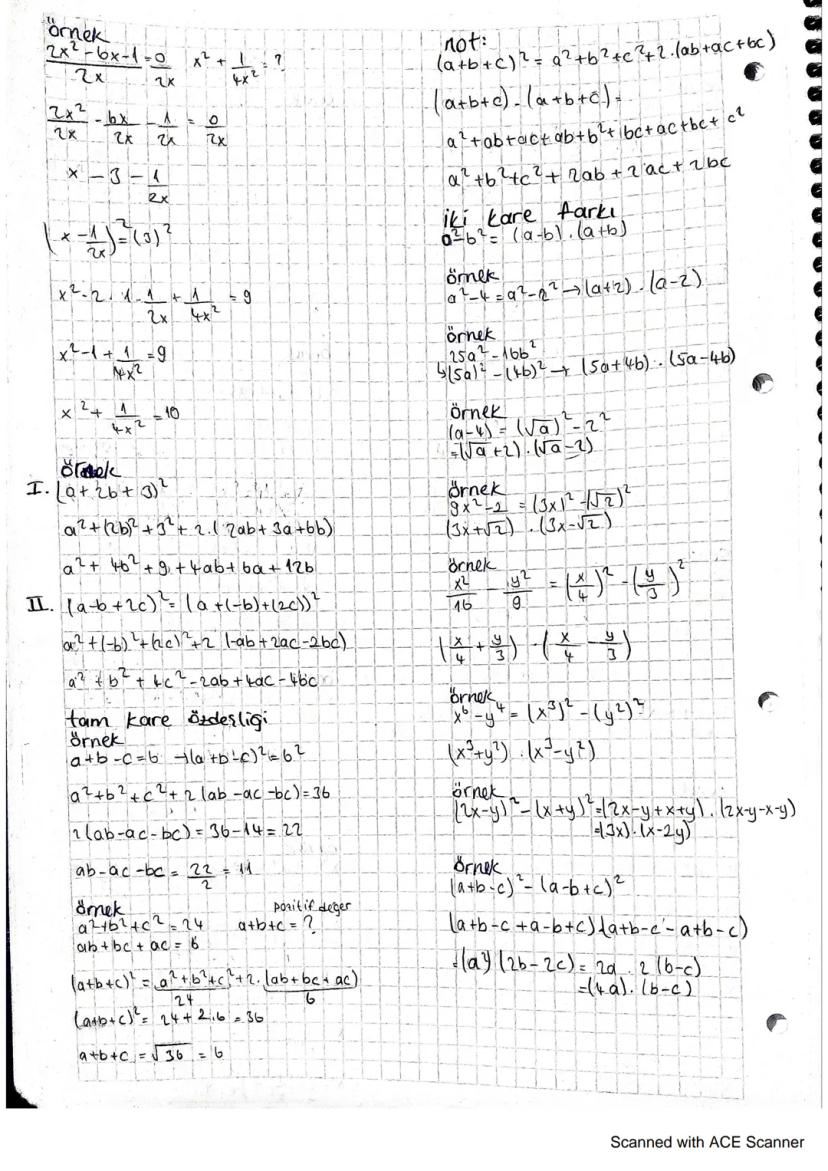 örnek
2x²-6x-1/2x = 0/2x x² + 1/4x² = ?
2x²/2x - 6x/2x - 1/2x = 0/2x
x - 3 - 1/2x
(x - 1/2x)² = (3)²
x² - 2 · 1 · 1/2x + 1/4x² = 9
x² - 1 + 1/4x² = 9
x² + 1/4x² = 10
örnek
I. (a + 2b + 3)²
a² + (2b)² + 3² + 2·(2ab + 3a + 6b)
a² + 4b² + 9 + 4ab + 6a + 12b
II. (a-b+2c)² = (a+(-b)+(2c))²
a² + (-b)² + (2c)² + 2 (-ab + 2ac - 2bc)
a² + b² + 4c² - 2ab + 4ac - 4bc
tam kare özdeşliği
örnek
a+b-c=6 → (a+b-c)² = 6²
a²+b²+c²+2(ab-ac-bc)=36
2(ab-ac-bc) = 36-14 = 22
ab-ac-bc = 22/2 = 11
örnek pozitif değer
a²+b²+c² = 24 a+b+c = ?
ab+bc+ac = 6
(a+b+c)² = a²+b²+c²+2·(ab+bc+ac)
24 6
(a+b+c)² = 24+2·6 = 36
a+b+c = √36 = 6
not:
(a+b+c)² = a²+b²+c²+2·(ab+ac+bc)
(a+b+c) · (a+b+c) =
a²+ab+ac+ab+b²+bc+ac+bc+c²
a²+b²+c²+2ab+2ac+2bc
iki kare farkı
a²-b² = (a-b)·(a+b)
örnek
a²-4 = a²-2² → (a+2)·(a-2)
örnek
25a²-16b²
↳(5a)²-(4b)² → (5a+4b)·(5a-4b)
örnek
(a-4) = (√a)² - 2²
=(√a+2)·(√a-2)
örnek
9x²-2 = (3x)²-(√2)²
(3x+√2) · (3x-√2)
örnek
x²/16 - y²/9 = (x/4)² - (y/3)²
(x/4 + y/3) · (x/4 - y/3)
örnek
x⁶-y⁴ = (x³)² - (y²)²
(x³+y²) · (x³-y²)
örnek
(2x-y)² - (x+y)² = (2x-y+x+y)·(2x-y-x-y)
=(3x)·(x-2y)
örnek
(a+b-c)² - (a-b+c)²
(a+b-c+a-b+c)·(a+b-c-a+b-c)
(2b-2c) = 2a · 2(b-c)
=(4a)·(b-c)
Scanned with ACE Scanner